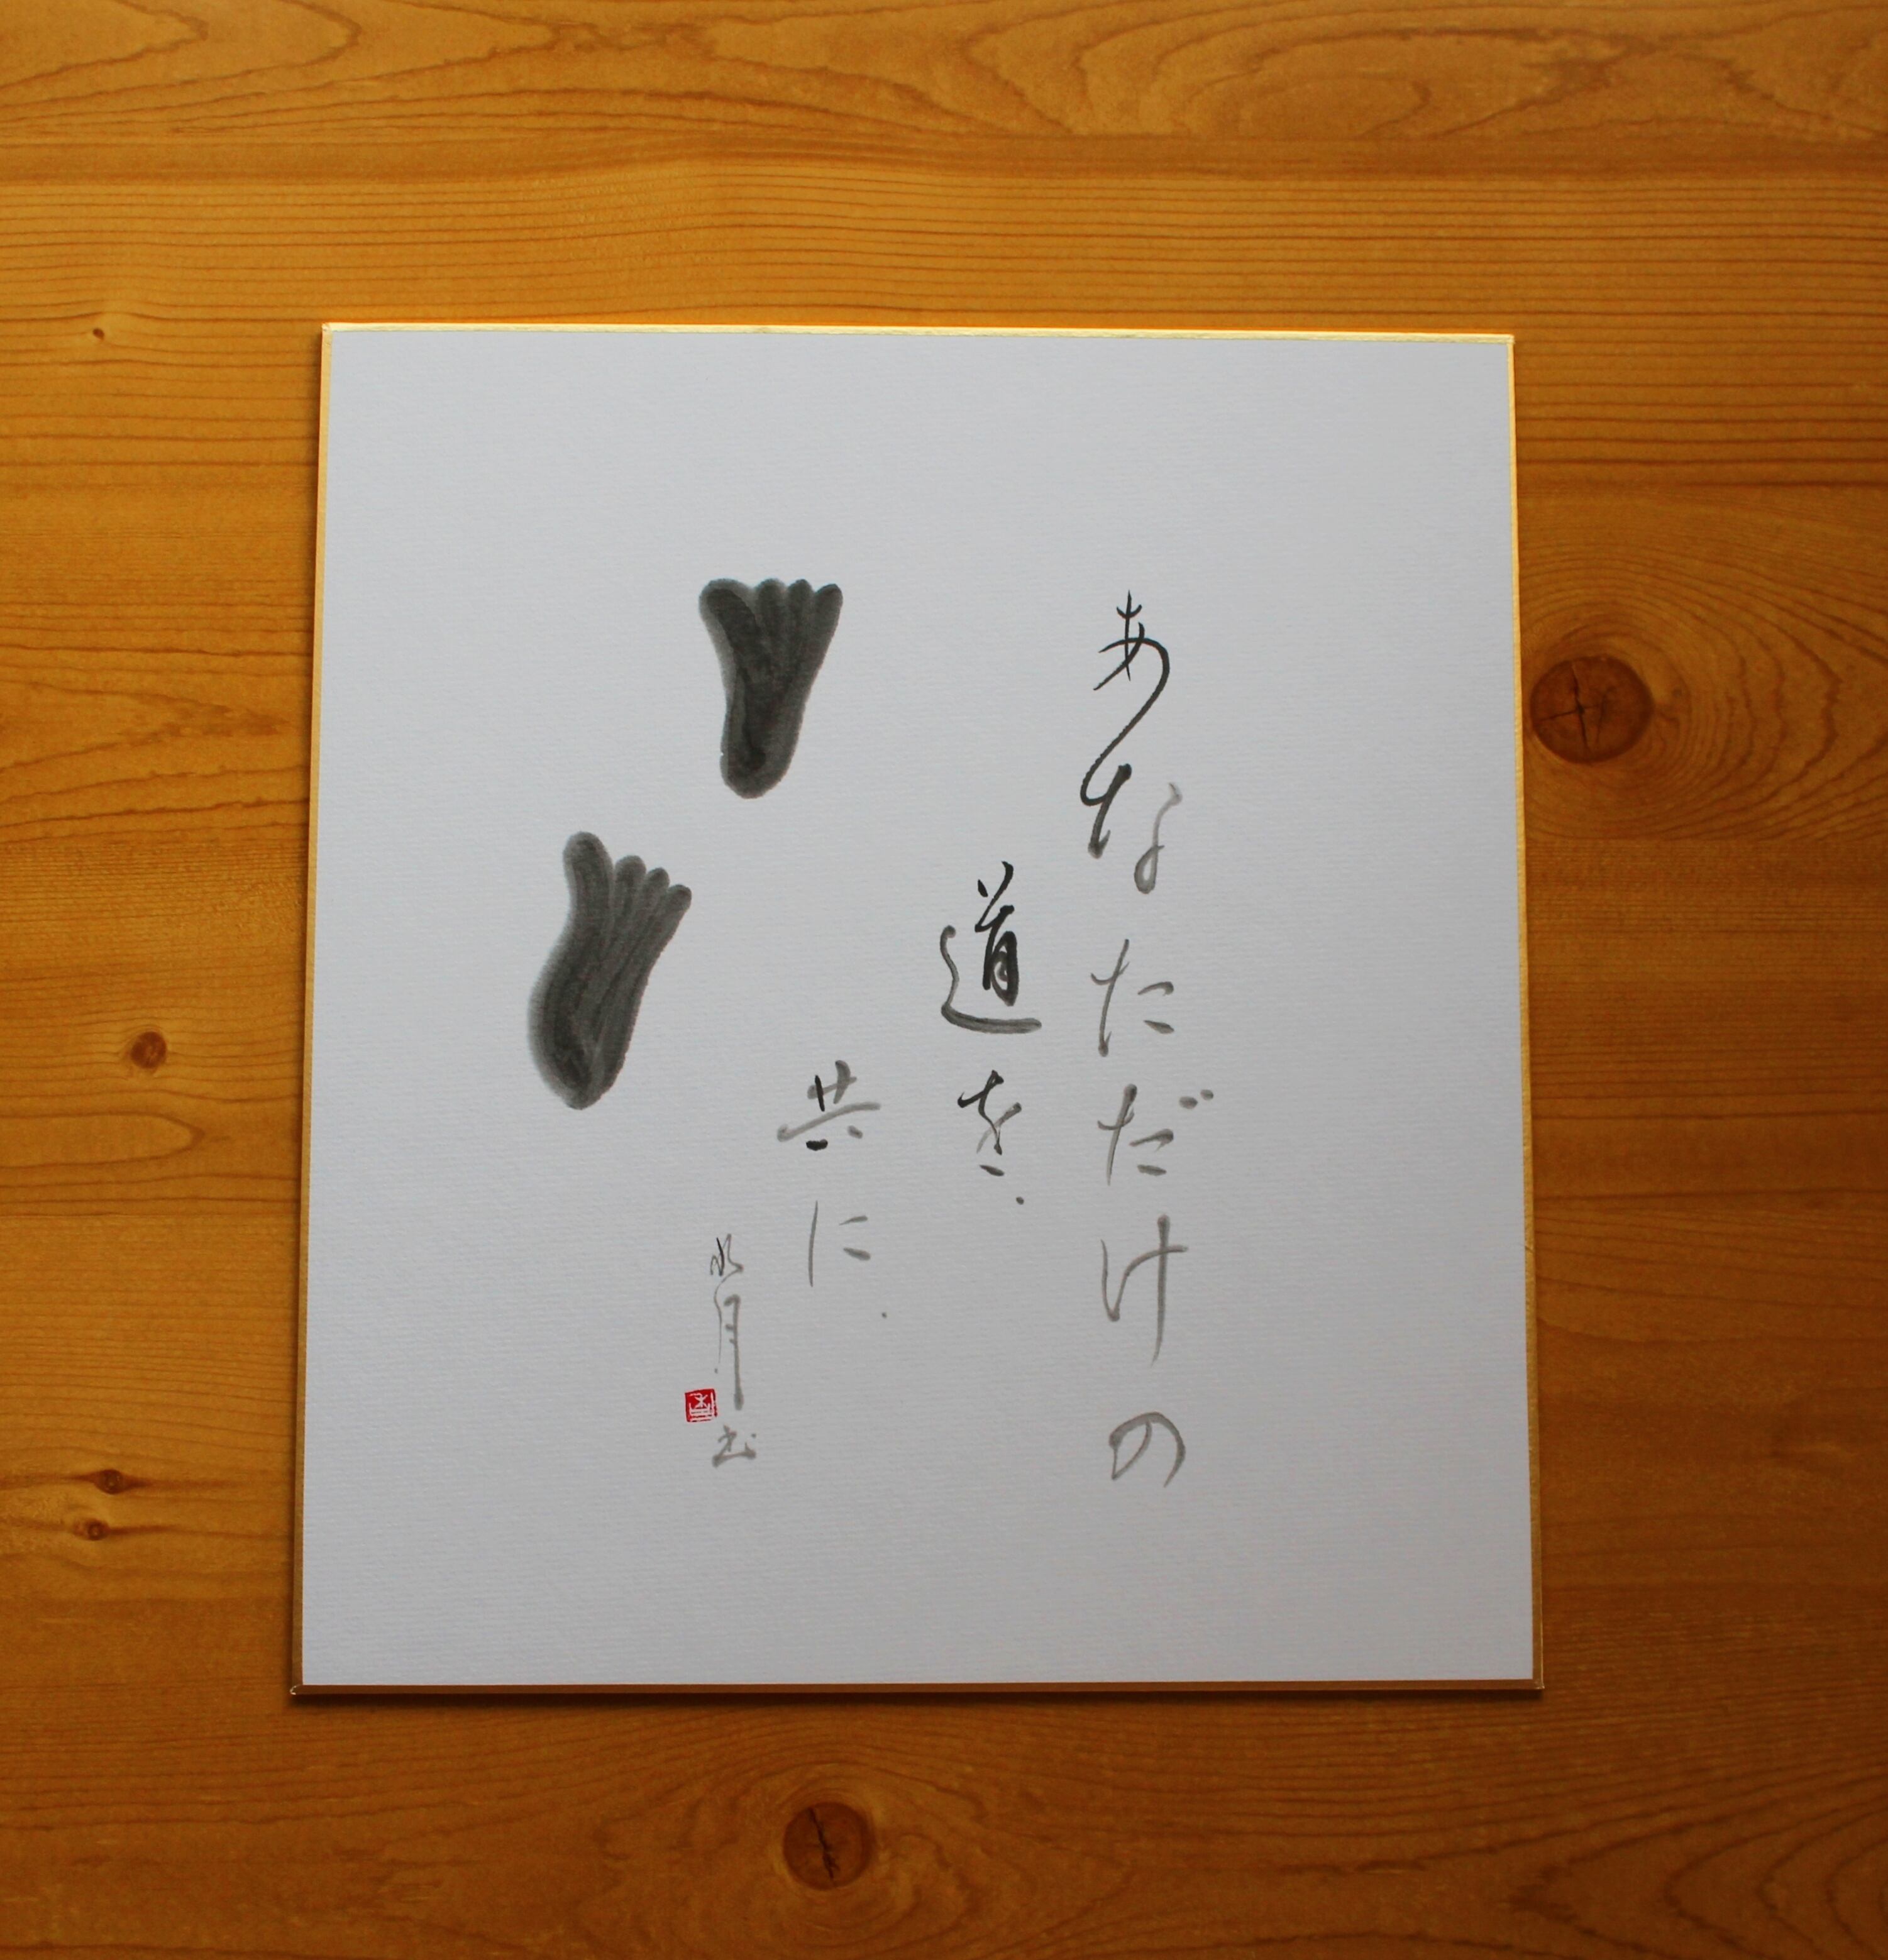 あなただけの
道を
共に
水月書